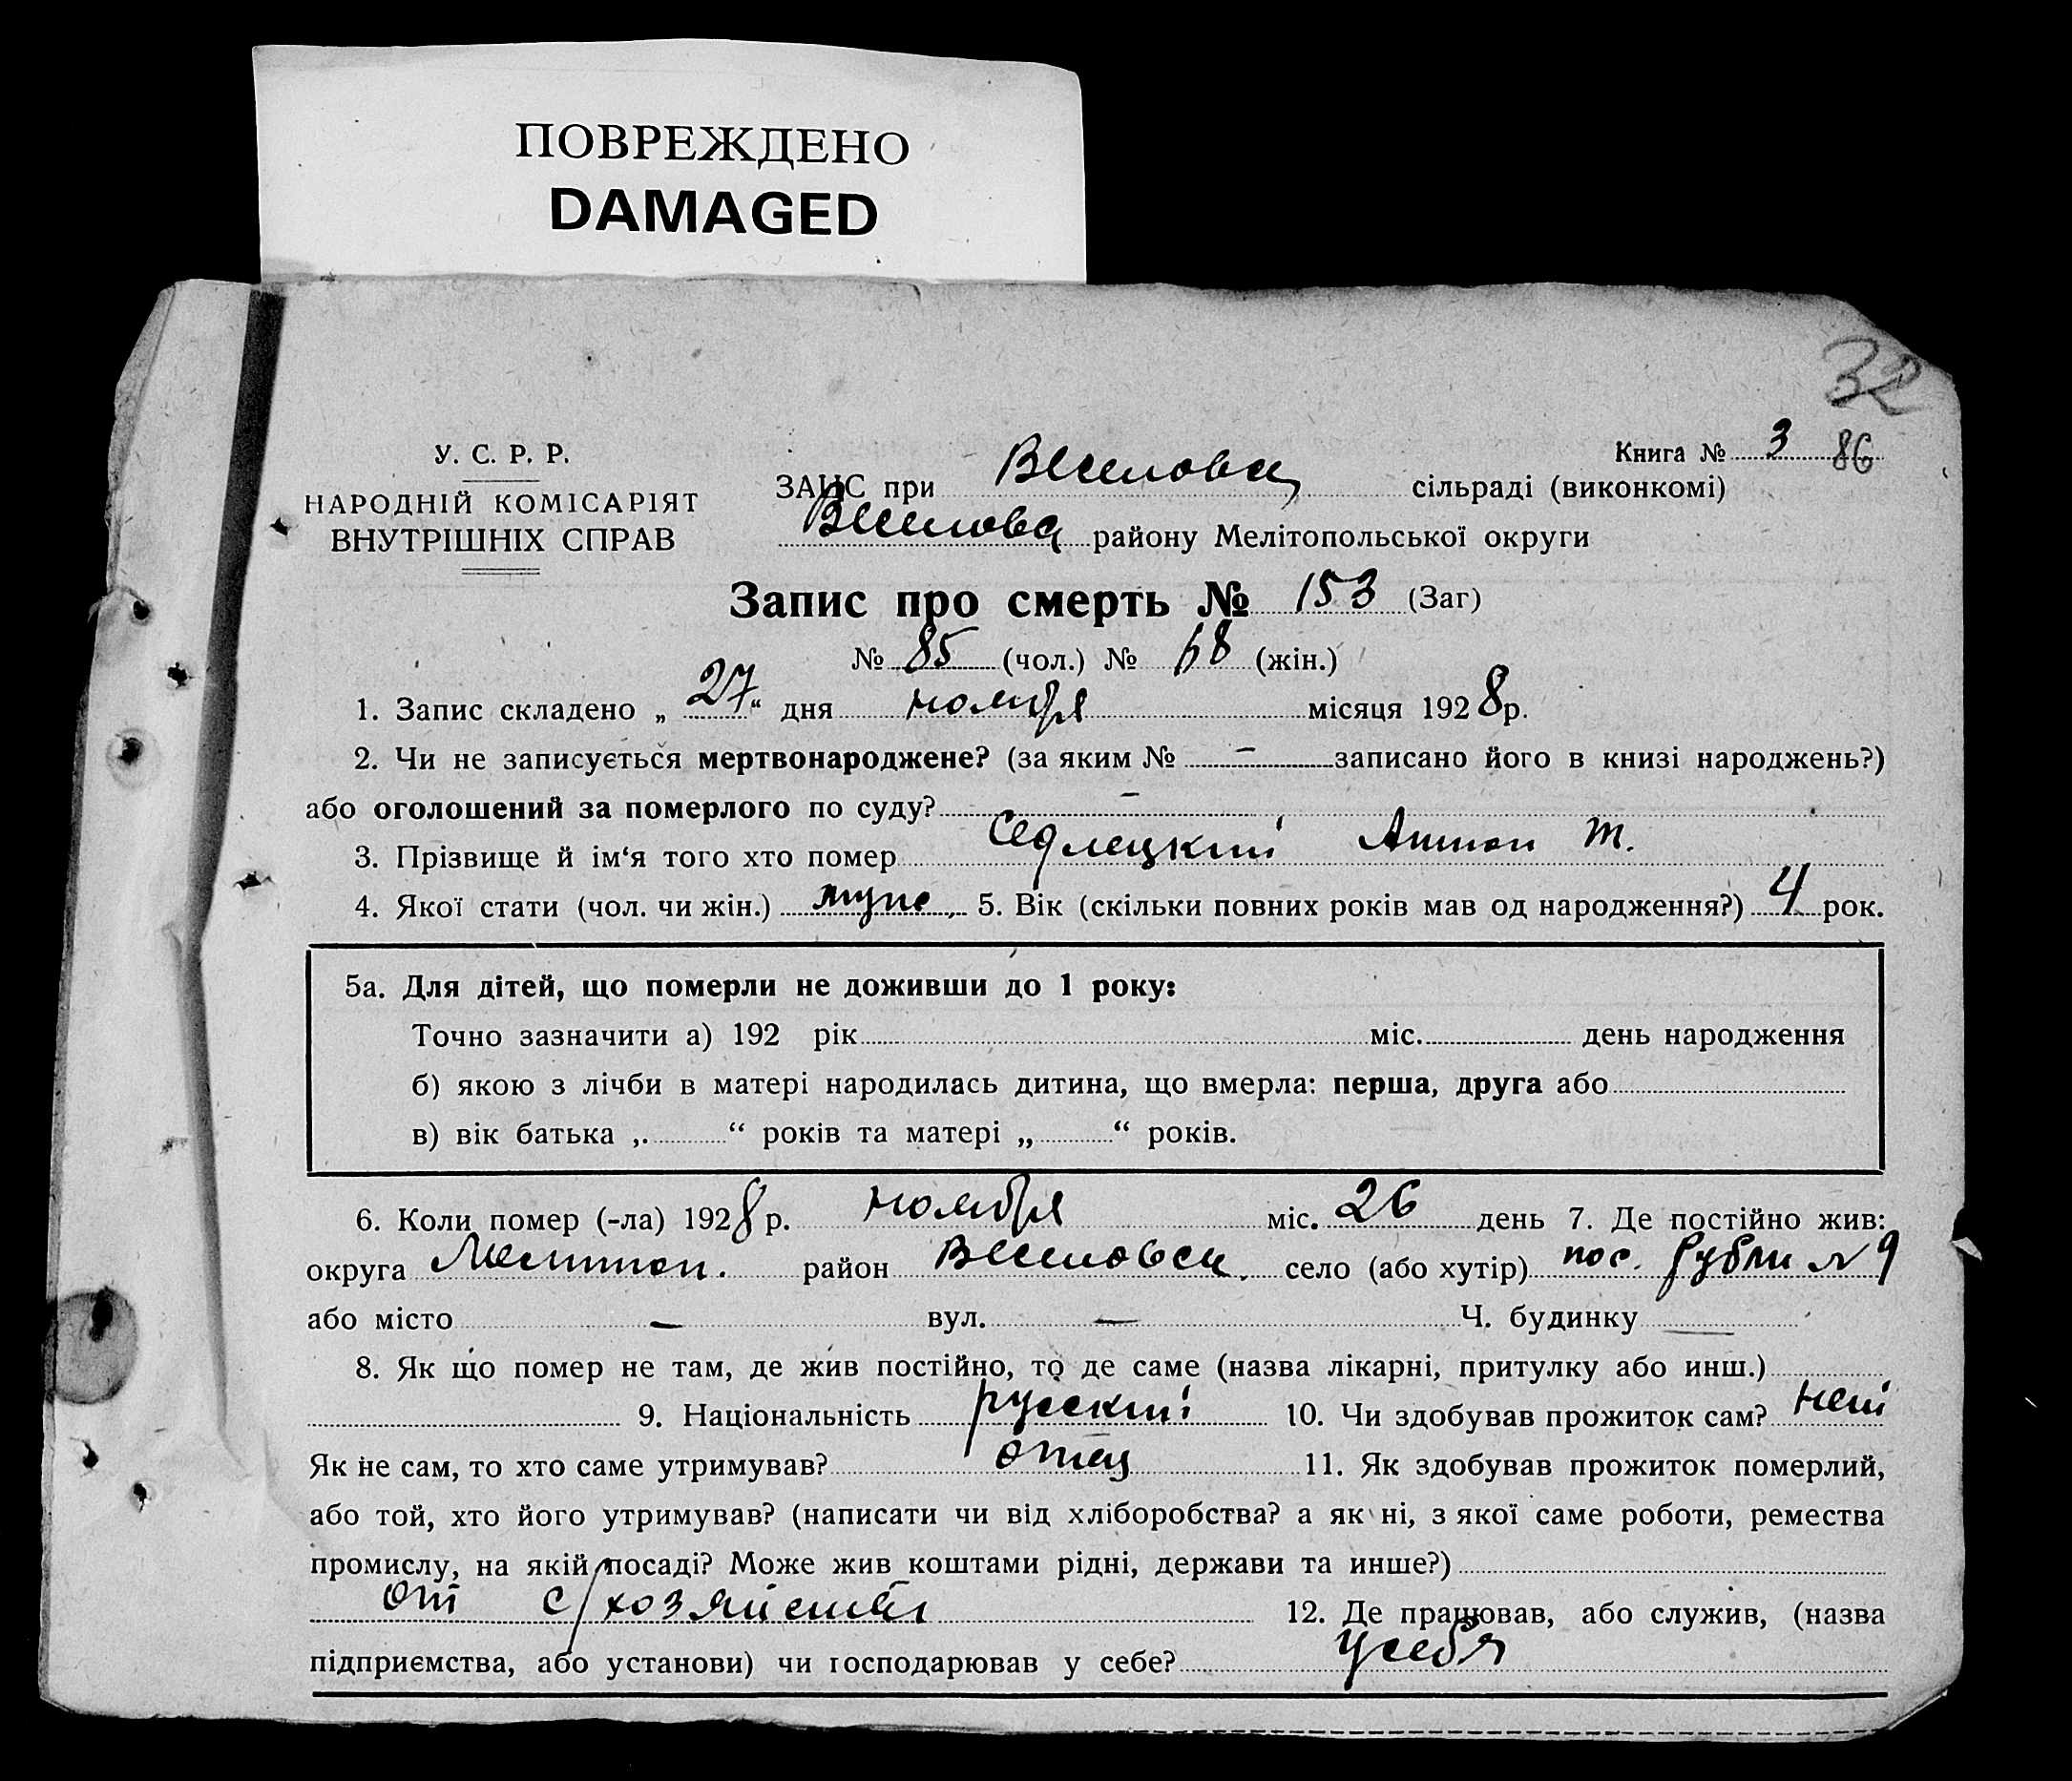 ПОВРЕЖДЕНО
DAMAGED
32
У. С. Р. Р.
НАРОДНІЙ КОМІСАРІЯТ
ВНУТРІШНІХ СПРАВ
Книга № 3 86
ЗАГС при Веселовск сільраді (виконкомі)
Веселовск району Мелітопольської округи
Запис про смерть № 153 (Заг)
№ 85 (чол.) № 68 (жін.)
1. Запис складено „ 27 “ дня ноября місяця 1928 р.
2. Чи не записується мертвонароджене? (за яким № – записано його в книзі народжень?)
або оголошений за померлого по суду? –
3. Прізвище й ім‘я того хто помер Седлецкий Антон Т.
4. Якої стати (чол. чи жін.) муж. 5. Вік (скільки повних років мав од народження?) 4 рок.
5а. Для дітей, що померли не доживши до 1 року:
Точно зазначити а) 192 рік міс. день народження
б) якою з лічби в матері народилась дитина, що вмерла: перша, друга або
в) вік батька „ “ років та матері „ “ років.
6. Коли помер (-ла) 1928 р. ноября міс. 26 день 7. Де постійно жив:
округа Мелитоп. район Веселовск. село (або хутір) пос. № 9
або місто — вул. — Ч. будинку —
8. Як що помер не там, де жив постійно, то де саме (назва лікарні, притулку або инш.)
9. Національність русский 10. Чи здобував прожиток сам? нет
Як не сам, то хто саме утримував? отец 11. Як здобував прожиток померлий,
або той, хто його утримував? (написати чи від хліборобства? а як ні, з якої саме роботи, ремества
промислу, на якій посаді? Може жив коштами рідні, держави та инше?)
от с/хозяйства 12. Де працював, або служив, (назва
підприємства, або установи) чи господарював у себе? у себя